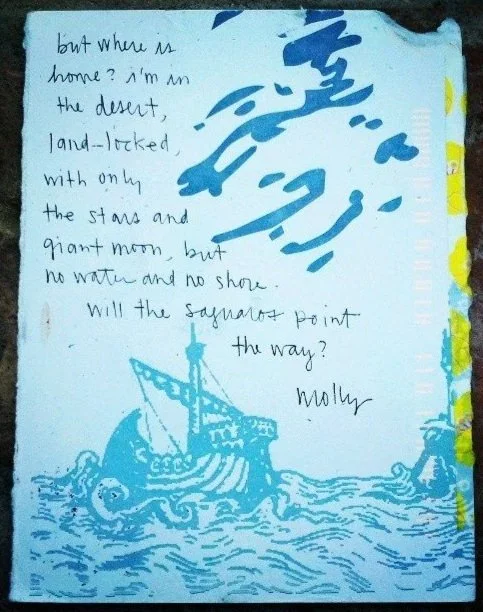 but where is
home? i'm in
the desert,
land-locked,
with only
the stars and
giant moon, but
no water and no shore.
will the saguaros point
the way?
molly